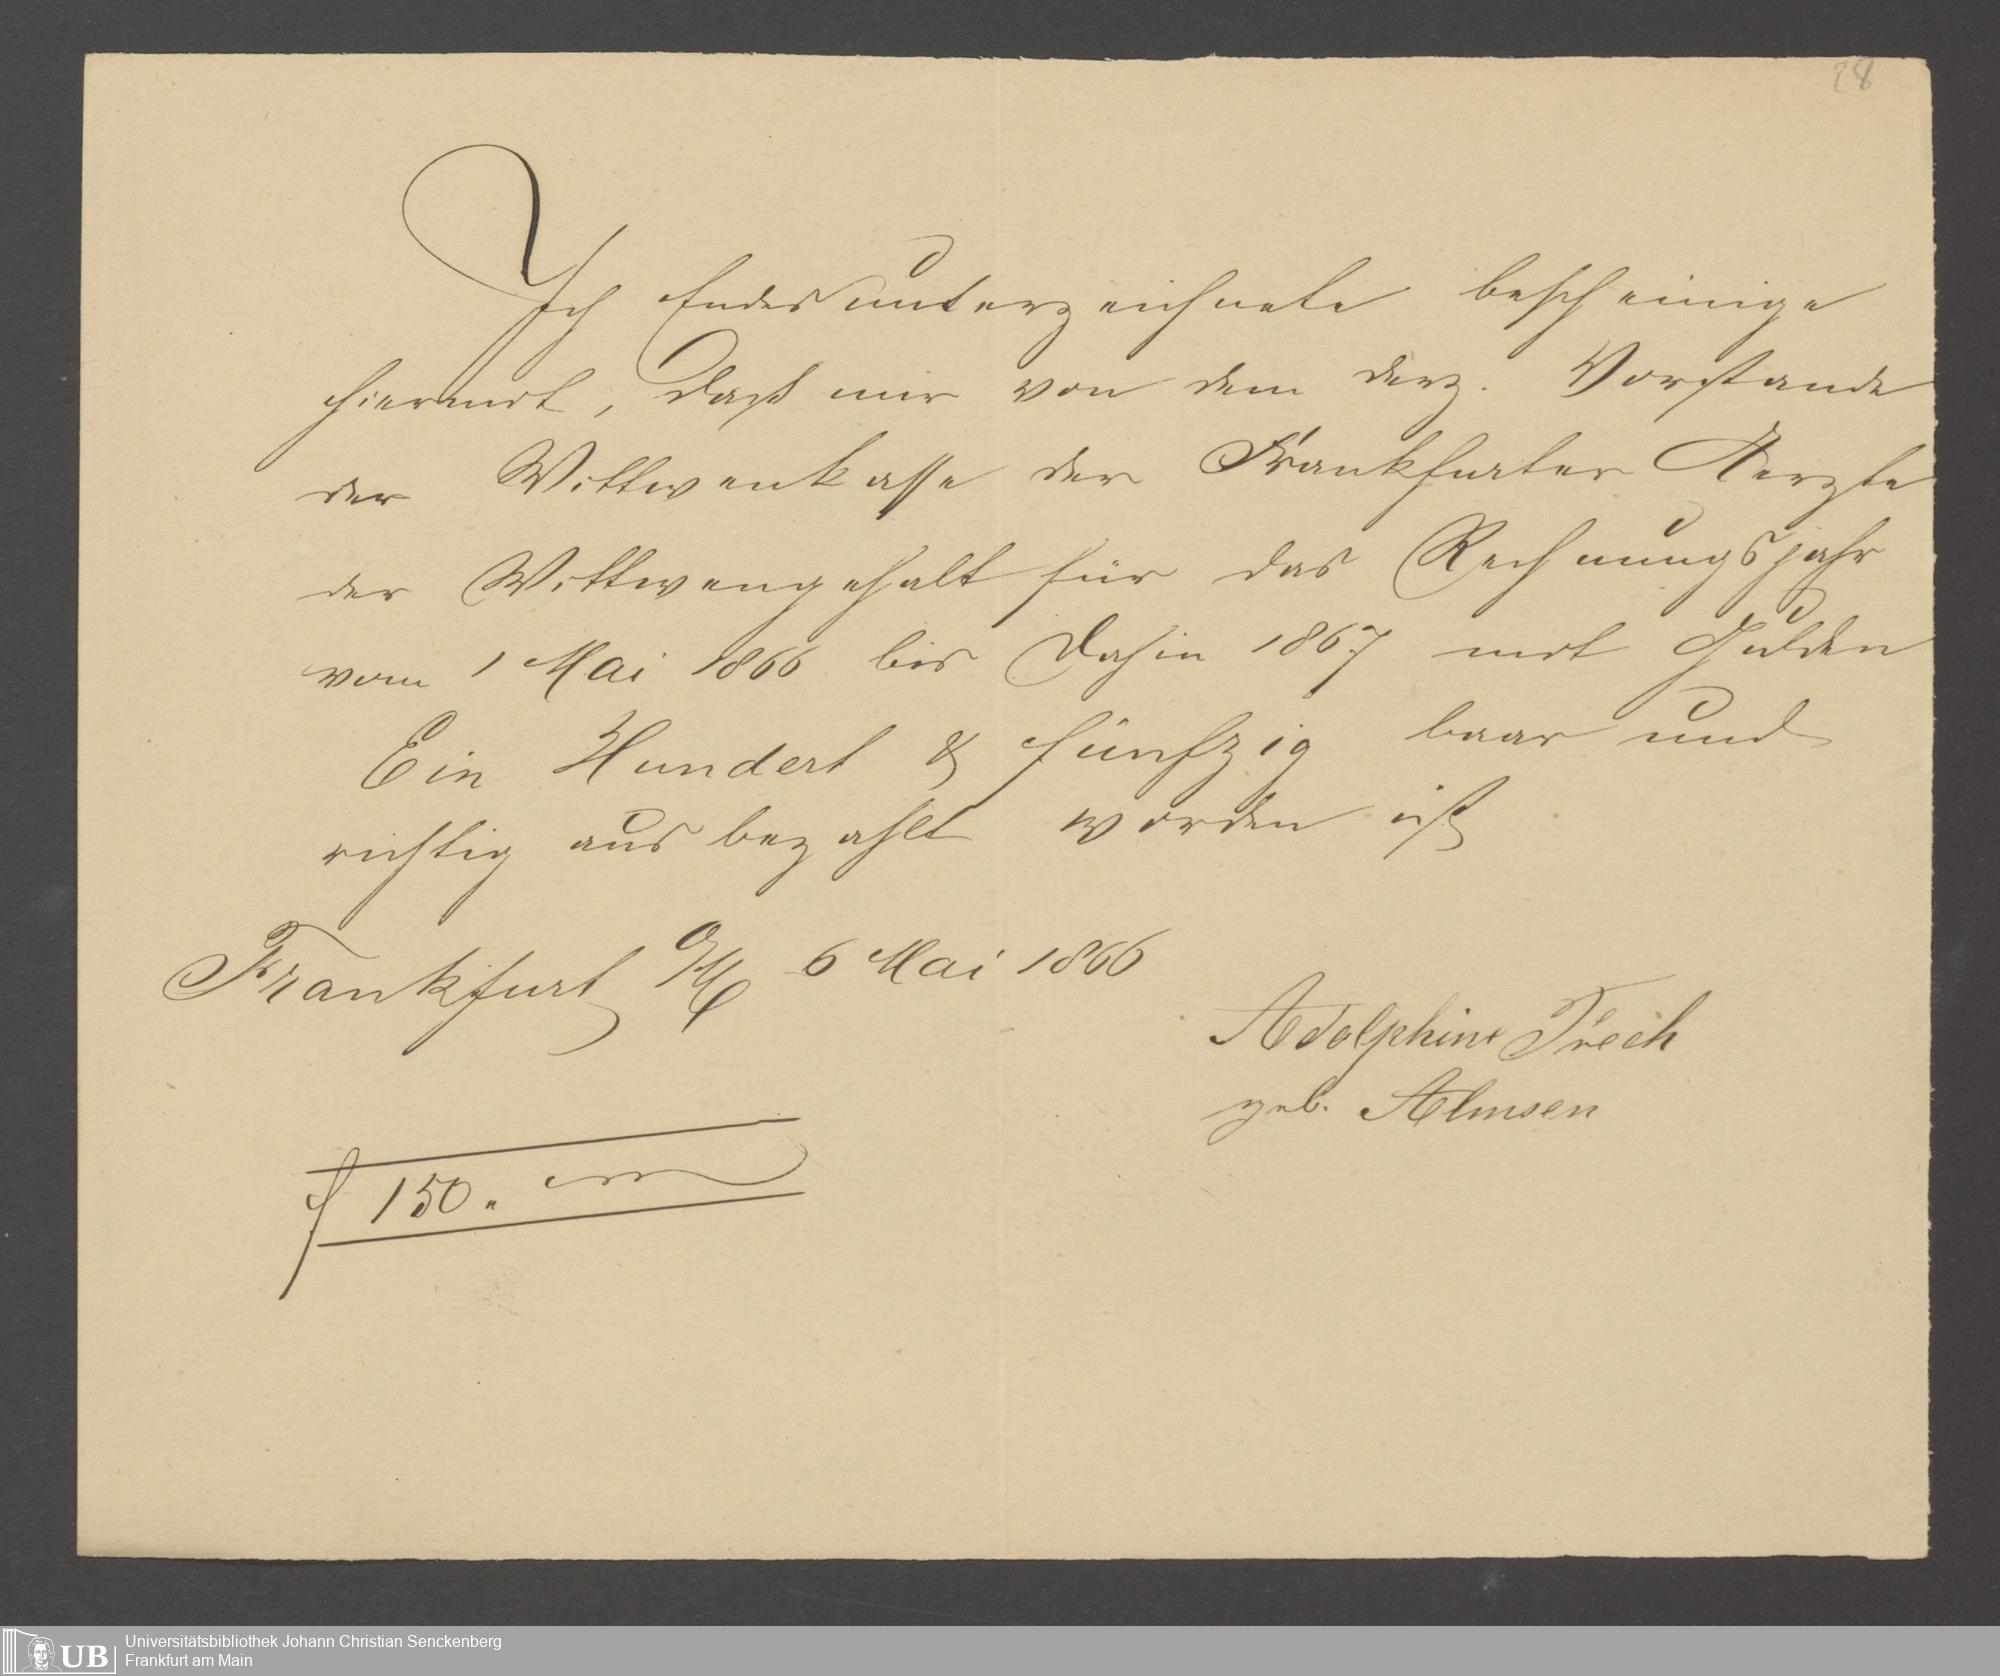 28
Ich Endesunterzeichnete bescheinige
hiermit, daß mir von dem derz. Vorstande
der Wittwenkasse der Frankfurter Aerzte
der Wittwengehalt für das Rechnungsjahr
vom 1 Mai 1866 bis dahin 1867 mit Gulden
Ein Hundert & fünfzig baar und
richtig ausbezahlt worden ist
Frankfurt a/M 6 Mai 1866
Adolphine
geb. Almsen
f 150.
UB Universitätsbibliothek Johann Christian Senckenberg
Frankfurt am Main